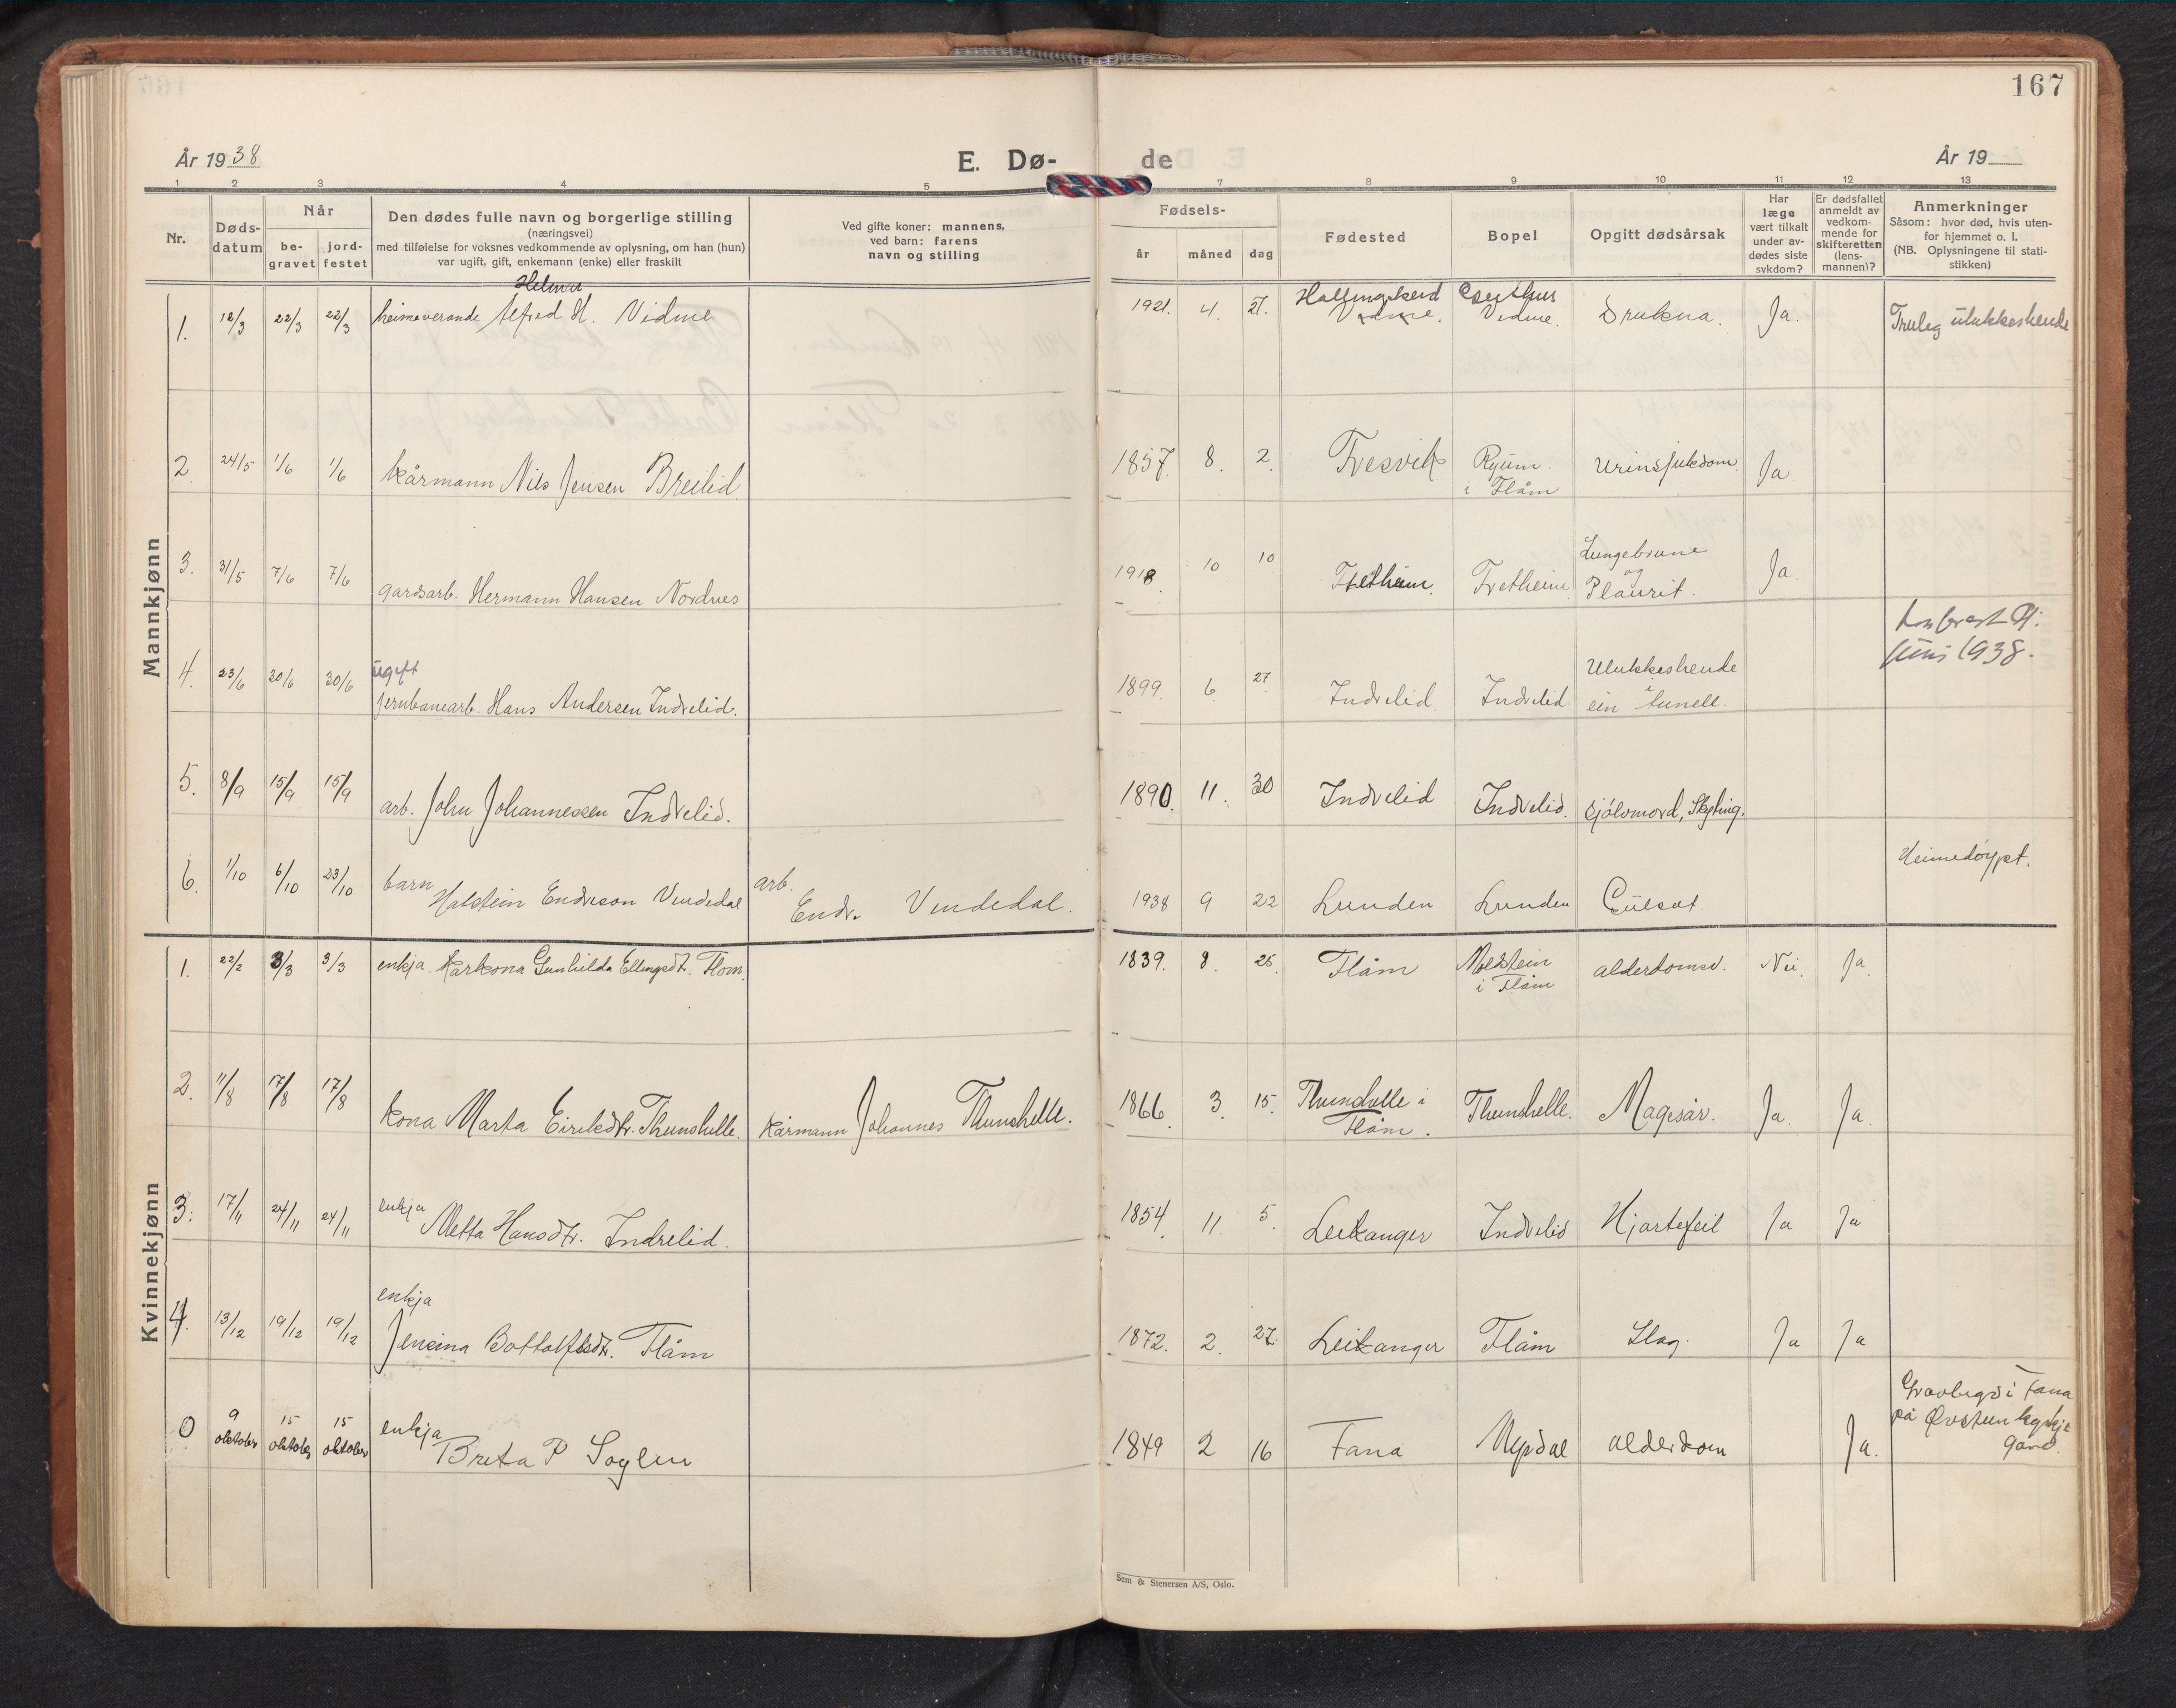 167
År 1938
E. Dø-
de
År 19
1 2 3 4 5 7 8 9 10 11 12 13
Nr.
Døds-
datum
Når
be-
gravet
jord-
festet
Den dødes fulle navn og borgerlige stilling
(næringsvei)
med tilføielse for voksnes vedkommende av oplysning, om han (hun)
var ugift, gift, enkemann (enke) eller fraskilt
Ved gifte koner: mannens,
ved barn: farens
navn og stilling
Fødsels-
år
måned
dag
Fødested
Bopel
Opgitt dødsårsak
Har
læge
vært tilkalt
under av-
dødes siste
sykdom?
Er dødsfallet
anmeldt av
vedkom-
mende for
skifteretten
(lens-
mannen)?
Anmerkninger
Såsom: hvor død, hvis uten-
for hjemmet o. l.
(NB. Oplysningene til stati-
stikken)
Mannkjønn
Helmer
1. 12/3 22/3 22/3 heimeverande Alfred H. Vidme 1921. 4. 21. Hallingskeid Vidme. Vidme. Drukna. Ja. Truleg ulukkeshende
2 24/5 1/6 1/6 kårmann Nils Jensen Breilid 1857. 8. 2. Fresvik Ryum. i Flåm Urinsjukdom. Ja.
3. 31/5 7/6 7/6 gardsarb. Hermann Hansen Nordnes 1918. 10 10 Fretheim. Fretheim. Lungebrune og Plaurit. Ja.
4. 23/6 30/6 30/6 ugift
jernbanearb. Hans Andersen Indrelid. 1899. 6 27 Indrelid. Indrelid Ulukkeshende i ein tunell.
juni 1938.
5. 8/9 15/9 15/9 arb. John Johannessen Indrelid. 1890. 11. 30 Indrelid Indrelid. Sjølvmord, Skyting.
6. 1/10 6/10 23/10 barn
Halstein Endreson Vindedal arb. Endr. Vindedal. 1938 9 22 Lunden Lunden Heimedøypt.
Kvinnekjønn
1. 22/2 3/3 3/3 enkja. Kårkona Gunhilda Ellingsdtr. Flom. 1839. 8. 25. Flåm i Flåm alderdomsv. Nei. Ja.
2. 11/8 17/8 17/8 kona Marta Eiriksdtr. Thunshelle. Kårmann Johannes Thunshelle. 1866. 3. 15. Thunshelle i Flåm. Thunshelle. Magesår. Ja. Ja.
3. 17/11 24/11 24/11 enkja
Metta Hansdtr. Indrelid. 1854. 11. 5. Leikanger Indrelid Hjartefeil Ja Ja
4. 13/12 19/12 19/12 enkja
Jensina Bottolfsdtr. Flåm 1872. 2. 27. Leikanger Flåm Slag. Ja Ja
0 9 oktober 15 oktober 15 oktober enkja
Brita P Soglen 1849 2 16 Fana Myrdal alderdom Ja. Gravlagd i Fana
på kyrkje-
gard.
Sem & Stenersen A/S, Oslo.